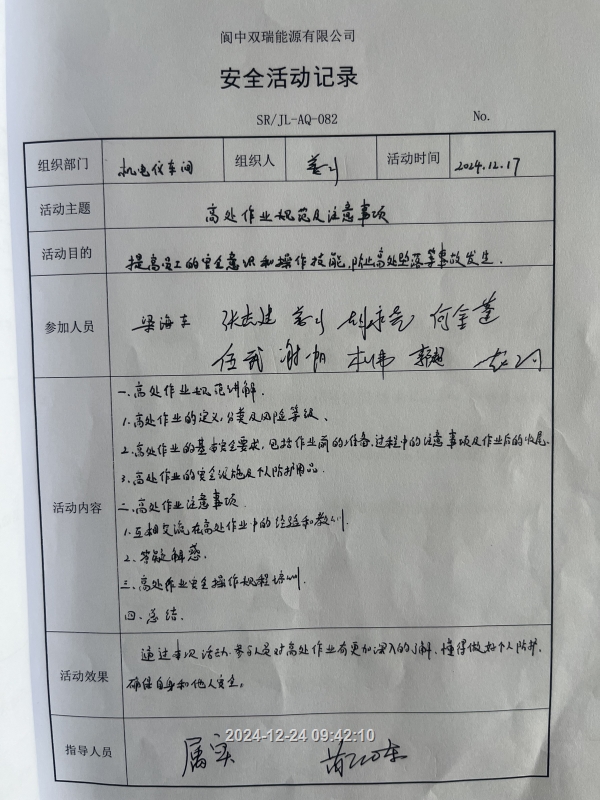 阆中双瑞能源有限公司
安全活动记录
SR/JL-AQ-082 No.
组织部门 机电仪车间 组织人 活动时间 2024.12.17
活动主题 高处作业规范及注意事项
活动目的 提高员工的安全意识和操作技能,防止高处坠落等事故发生.
参加人员 梁海 何金莲
伍武 谢帕
活动内容
一.高处作业规范讲解.
1.高处作业的定义,分类及风险等级、
2.高处作业的基本安全要求,包括作业前的准备,过程中的注意事项及作业后的收尾.
3.高处作业的安全设施及个人防护用品.
二.高处作业注意事项.
1.互相交流在高处作业中的经验和教训.
2.答疑解惑.
三.高处作业安全操作规程培训.
四.总结.
活动效果 通过本次活动.参与人员对高处作业有更加深入的了解.懂得做好个人防护.
确保自身和他人安全.
2024-12-24 09:42:10
指导人员 属实